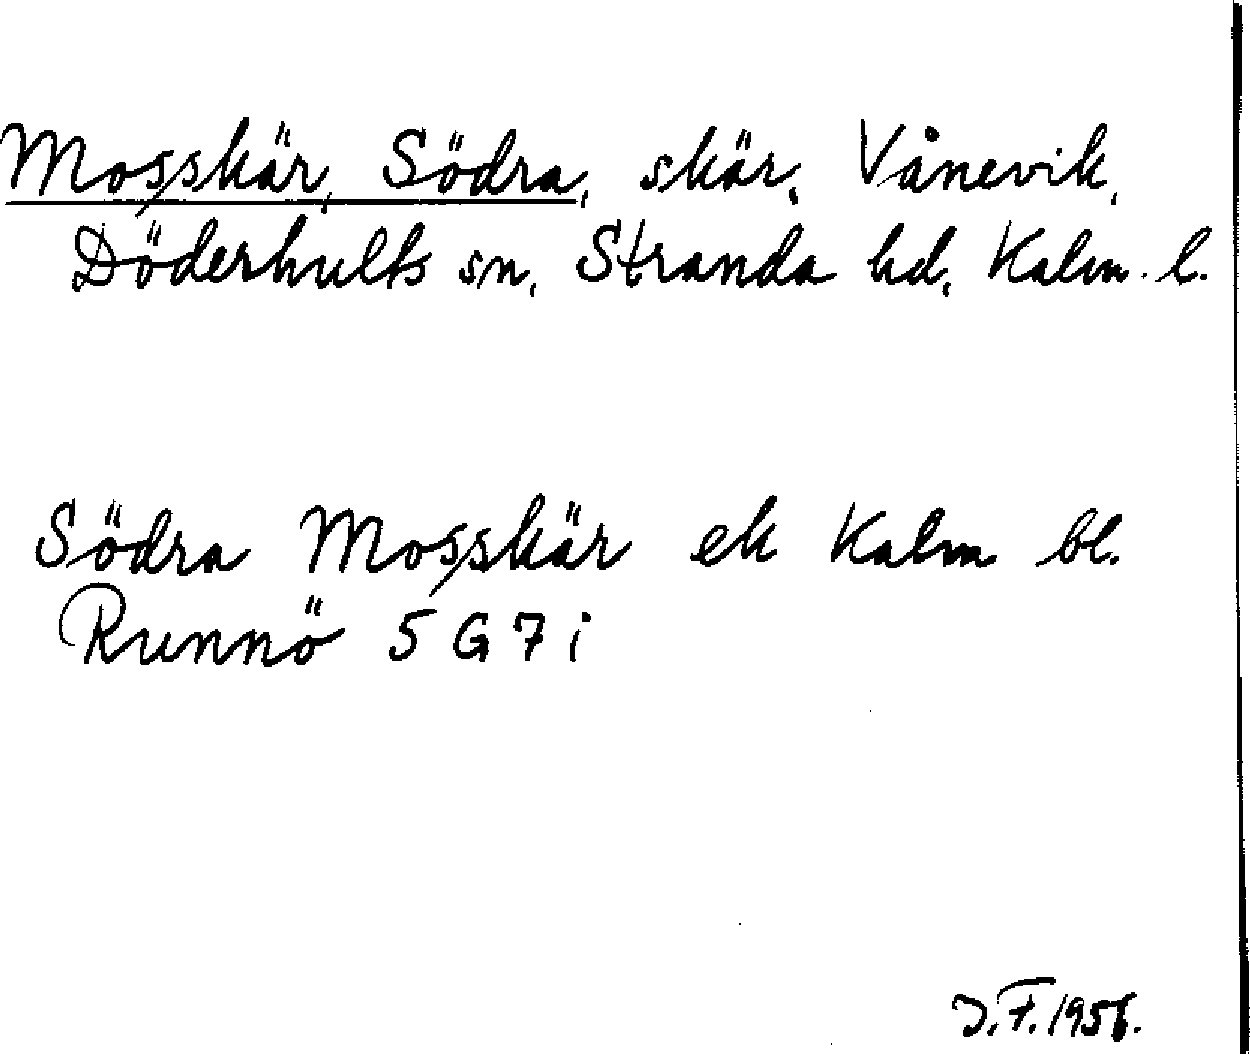 Mosskär, Södra, skär, Vånevik,
Döderhults sn, Stranda hd, Kalm. l.
Södra Mosskär ek Kalm bl.
Runnö 5 G 7 i
J.F. 1956.